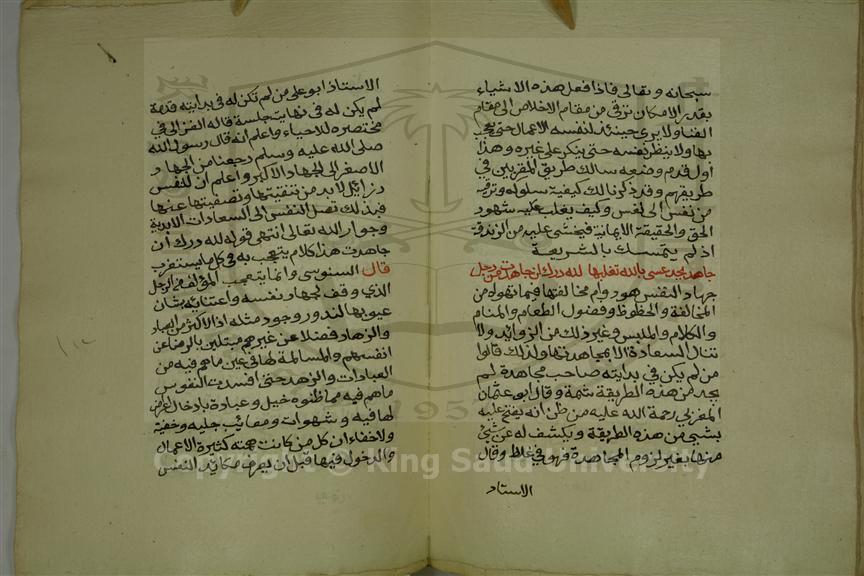 سبحانه وتعالى فاذا فعل هذه الاشياء
بقدر الامكان ترقى من مقام الاخلاص الى مقام
الفنا ولا يرى حينئذ لنفسه الاعمال حتى يعجب
بها ولا ينظر نفسه حتى ينكر على غيره وهذا
اول قدم وضعه سالك طريق المقربين في
طريقهم وقد ذكرنا لك كيفية سلوكه وترقيه
من نفس الى نفس وكيف يغلب عليه شهود
الحق والحقيقة الايمانية فيخشى عليه من الزندقة
اذ لم يتمسك بالشريعة
جاهد بجد عسى بالله تغلبها لله درك ان جاهدت من رجل
جهاد النفس هو دوام مخالفتها فيما تهواه من
المخالفة والحظوظ وفضول الطعام والمنام
والكلام والملبس وغير ذلك من الزوائد ولا
تنال السعادة الا بمجاهدتها ولذلك قالوا
من لم يكن في بدايته صاحب مجاهدة لم
يجد من هذه الطريقة شمة وقال ابو عثمان
المغربي رحمة الله عليه من ظن انه يفتح عليه
بشيء من هذه الطريقة ويكشف له عن شيء
منها بغير لزوم المجاهدة فهو في غلط وقال
الاستاد
الاستاذ ابو على من لم تكن له في بدايته قدمة
لم يكن له في نهايته جلسة قاله الغزالي في
مختصره للاحياء واعلم انه قال رسول الله
صلى الله عليه وسلم رجعنا من الجهاد
الاصغر الى الجهاد الاكبر واعلم ان للنفس
رزائل لابد من تنقيتها وتصفيتها عنها
فبذلك تصل النفس الى السعادات الابدية
وجوار الله تعالى انتهى قوله لله درك ان
جاهدت هذا كلام يتعجب به في كل ما يستغرب
قال السنوسى وانما يتعجب المؤلف من الرجل
الذي وقف لجهاد نفسه واعتنائه بشان
عيوبها لندور وجود مثله اذ الاكثر من العباد
والزهاد فضلا عن غيرهم مبتلين بالرضا عن
انفسهم والمسالمة لها في عين ما هم فيه من
العبادات والزهد حتى افسدت النفوس
ما هم فيه مما ظنوه خيل وعبادة بادخال اغراض
لها فيه وشهوات ومعائب جليه وخفية
ولاخفاء ان كل من كانت همته كثيرة الاعمال
والدخول فيها قبل ان يعرف مكائد النفس
Copyright © King Saud University